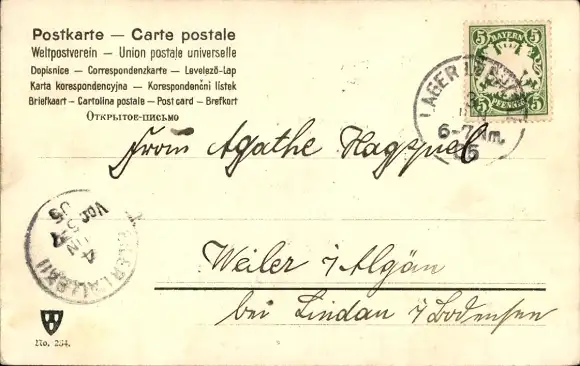 Postkarte — Carte postale
Weltpostverein — Union postale universelle
Dopisnice — Correspondenzkarte — Levelező-Lap
Karta korespondencyjna — Korespondenční lístek
Briefkaart — Cartolina postale — Post card — Brefkort
Открытое-письмо
5 BAYERN 5
5 PFENNIG 5
LAGER
6-7 Nm.
05
From Agathe Hagspiel
Weiler i/Algäu
bei Lindau i/Bodensee
4 JUN
Vor.
05
No. 264.